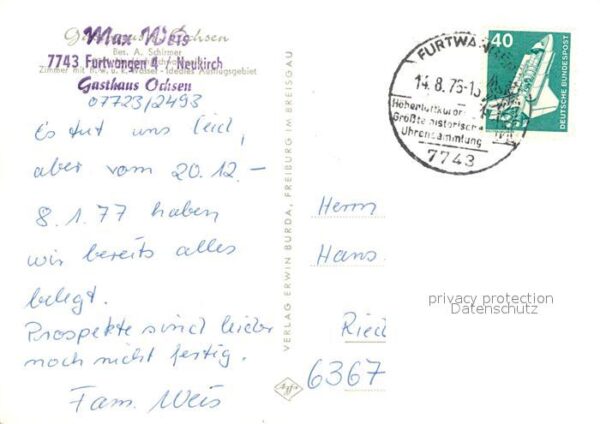 Gasthaus z. Ochsen
Bes. A. Schirmer
Max Weis
7743 Furtwangen 4 / Neukirch
Zimmer mit fl. w. u. k. Wasser - Ideales Ausflugsgebiet
Gasthaus Ochsen
07723/2493
Es tut uns leid,
aber vom 20.12.-
8.1.77 haben
wir bereits alles
belegt.
Prospekte sind leider
noch nicht fertig.
Fam. Weis
VERLAG ERWIN BURDA, FREIBURG IM BREISGAU
Agfa
FURTWANGEN
14.8.76-13
Höhenluftkurort
Größte historische
Uhrensammlung
7743
40
DEUTSCHE BUNDESPOST
Herrn
Hans
Ried
6367
privacy protection
Datenschutz